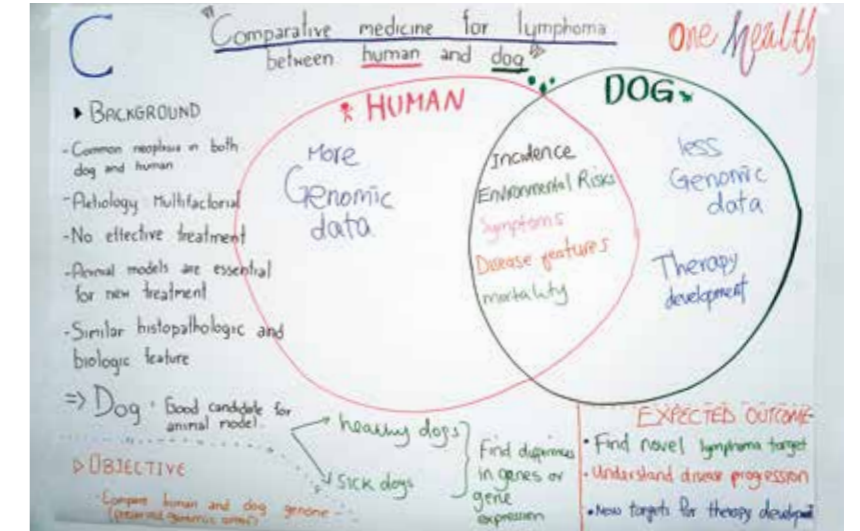 C
"Comparative medicine for lymphoma
between human and dog"
One Health
▸ BACKGROUND
- Common neoplasia in both
dog and human
- Aetiology Multifactorial
- No effective treatment
- Animal models are essential
for new treatment
- Similar histopathologic and
biologic feature
=> Dog : Good candidate for
animal model
▷ OBJECTIVE
- Compare human and dog genome
HUMAN
More
Genomic
data
Incidence
Environmental Risks
Symptoms
Disease features
mortality
DOG
less
Genomic
data
Therapy
development
healthy dogs
sick dogs
Find differences
in genes or
gene
expression
EXPECTED OUTCOME
• Find novel lymphoma target
• Understand disease progression
• New targets for therapy